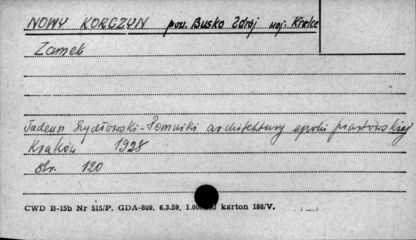 NOWY KORCZYN pow. Busko Zdrój woj. Kielce
Zamek
Tadeusz Szydłowski - Pomniki architektury epoki piastowskiej
Kraków 1928
str. 120
CWD B-15b Nr 515/P. GDA-809. 6.3.59. karton 180/V.